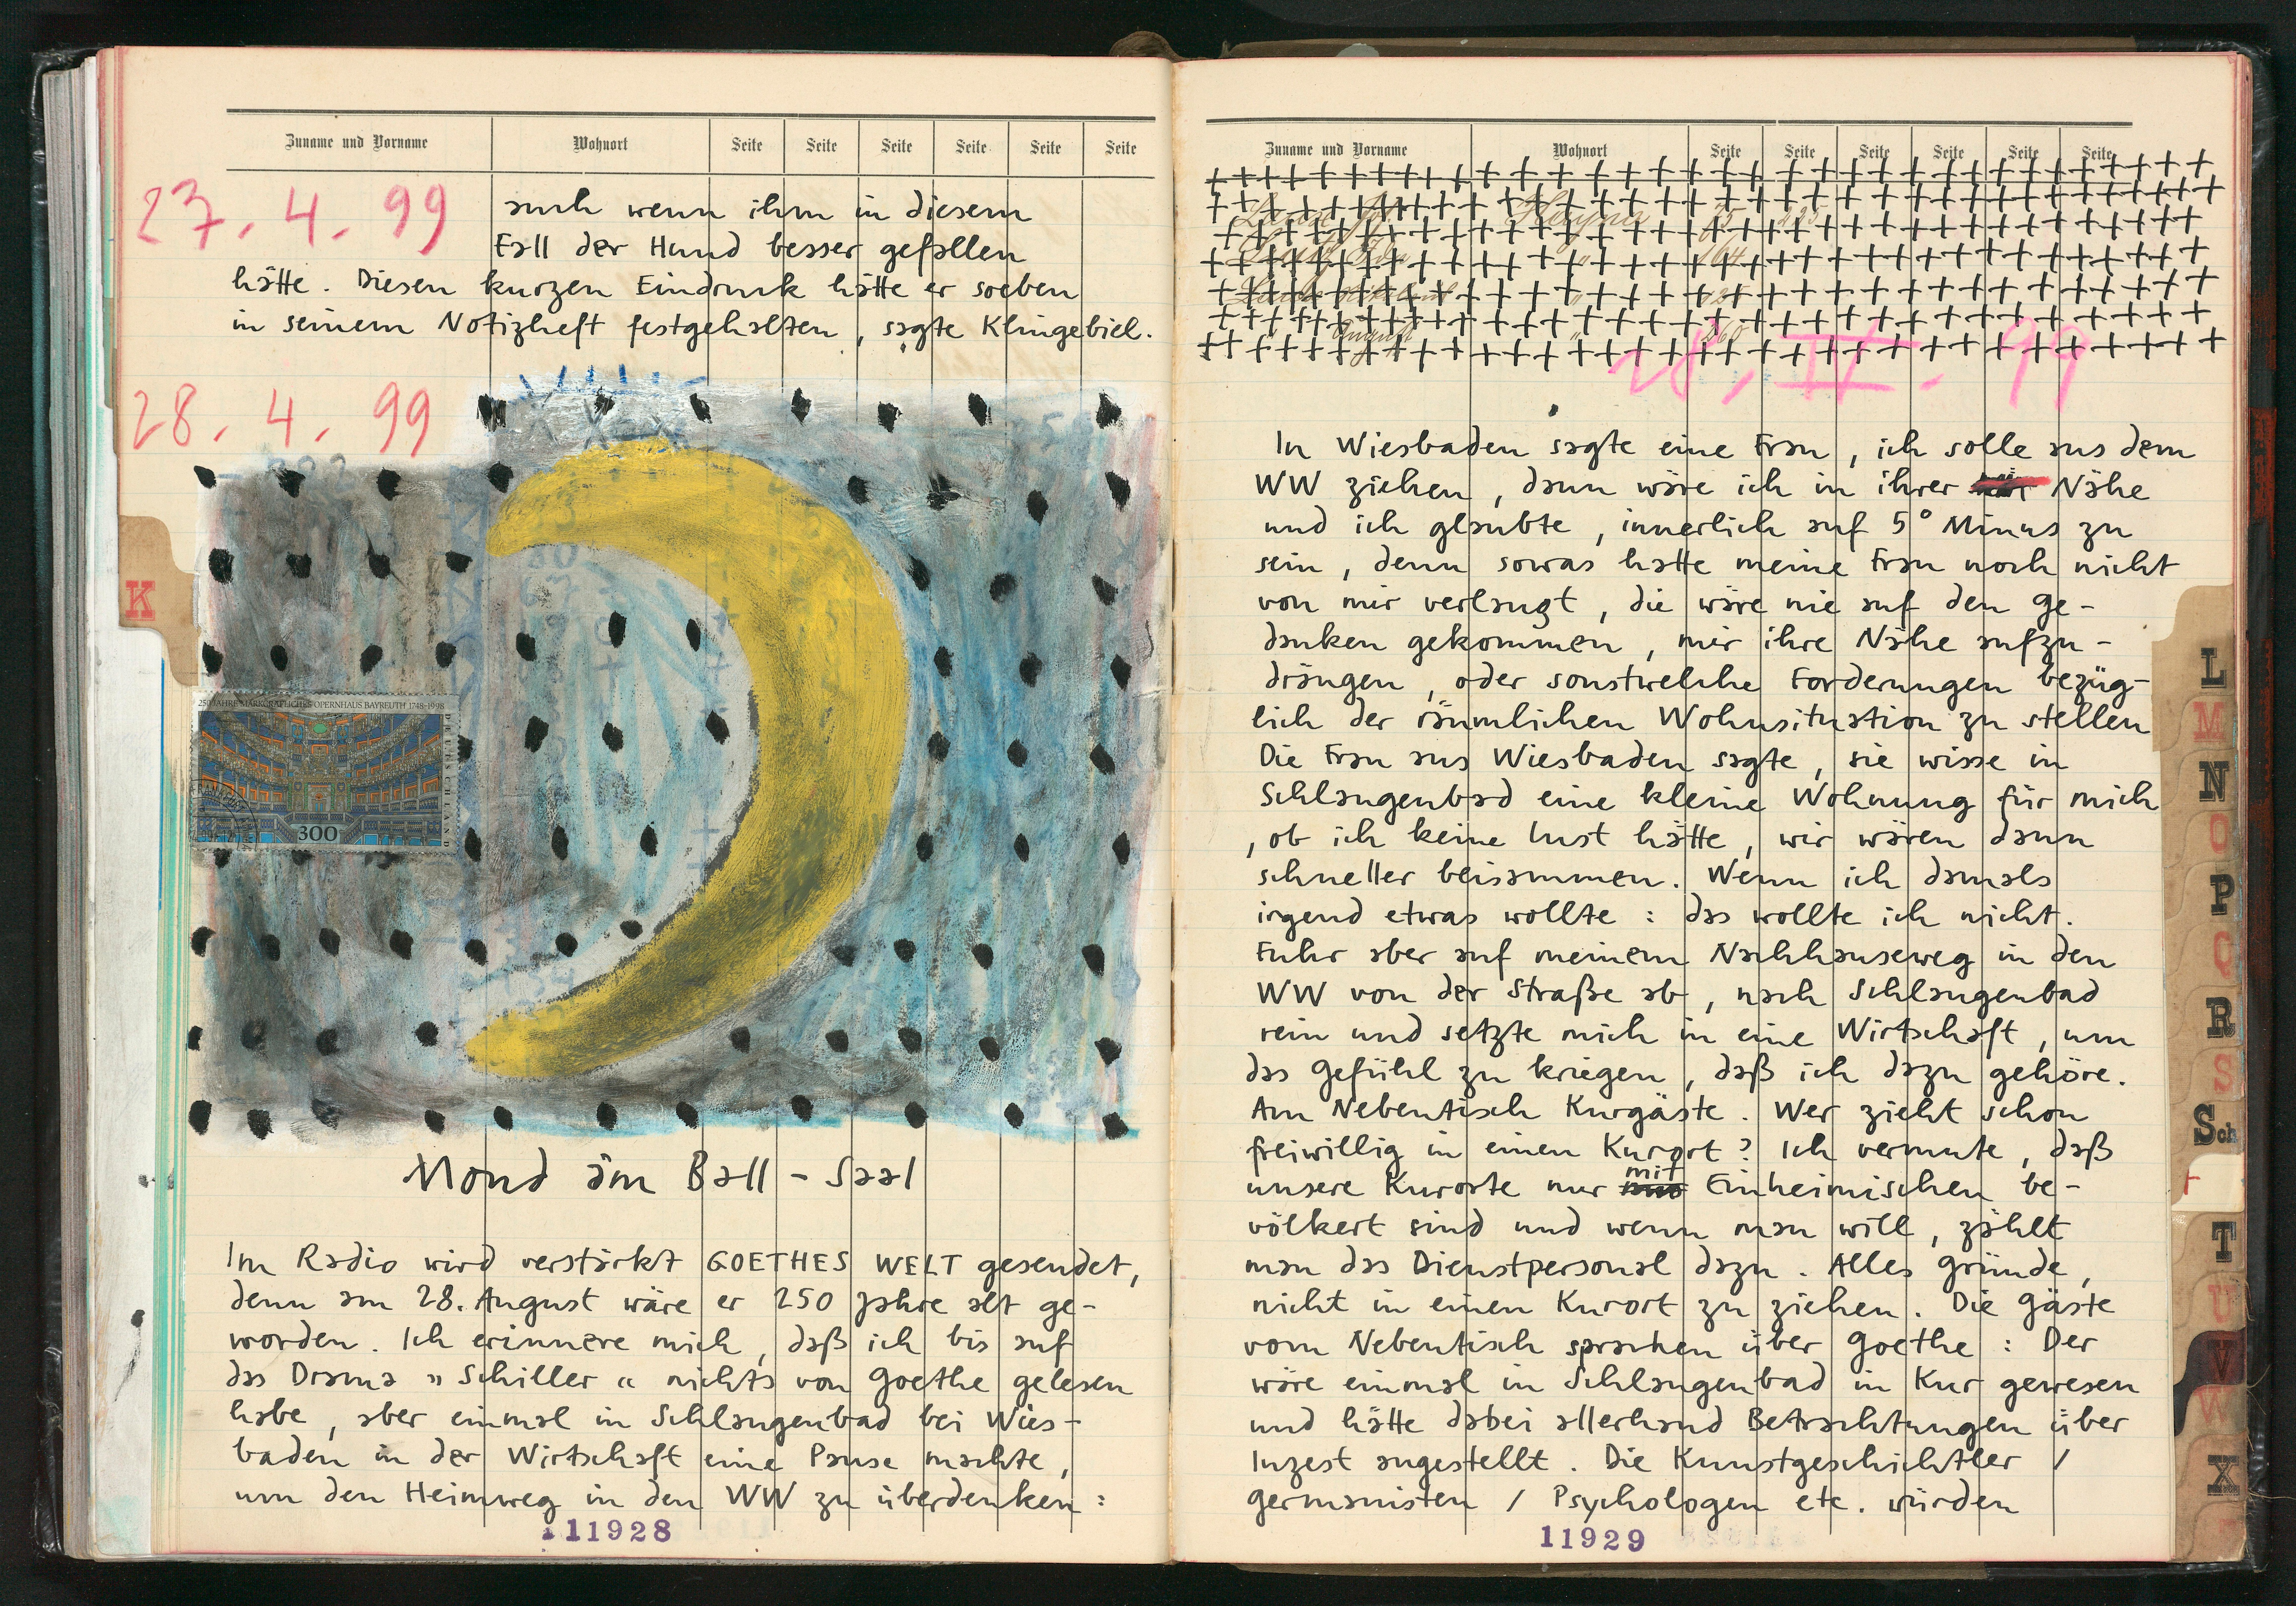 Zuname und Vorname Wohnort Seite Seite Seite Seite Seite Seite
27. 4. 99
auch wenn ihm in diesem
Fall der Hund besser gefallen
hätte. Diesen kurzen Eindruck hätte er soeben
in seinem Notizheft festgehalten, sagte Klingebiel.
28. 4. 99
K
250 JAHRE MARKGRÄFLICHES OPERNHAUS BAYREUTH 1748-1998
DEUTSCHLAND
300
Mond im Ball-Saal
Im Radio wird verstärkt GOETHES WELT gesendet,
denn am 28. August wäre er 250 Jahre alt ge-
worden. Ich erinnere mich, daß ich bis auf
das Drama „Schiller“ nichts von Goethe gelesen
habe, aber einmal in Schlangenbad bei Wies-
baden in der Wirtschaft eine Pause machte,
um den Heimweg in den WW zu überdenken:
11928
Zuname und Vorname Wohnort Seite Seite Seite Seite Seite Seite
28. IV. 99
In Wiesbaden sagte eine Frau, ich solle aus dem
WW ziehen, dann wäre ich in ihrer Nähe
und ich glaubte, innerlich auf 5° Minus zu
sein, denn sowas hatte meine Frau noch nicht
von mir verlangt, die wäre nie auf den Ge-
danken gekommen, mir ihre Nähe aufzu-
drängen, oder sonstwelche Forderungen bezüg-
lich der räumlichen Wohnsituation zu stellen
Die Frau aus Wiesbaden sagte, sie wisse in
Schlangenbad eine kleine Wohnung für mich
, ob ich keine Lust hätte, wir wären dann
schneller beisammen. Wenn ich damals
irgend etwas wollte: das wollte ich nicht.
Fuhr aber auf meinem Nachhauseweg in den
WW von der Straße ab, nach Schlangenbad
rein und setzte mich in eine Wirtschaft, um
das Gefühl zu kriegen, daß ich dazu gehöre.
Am Nebentisch Kurgäste. Wer zieht schon
freiwillig in einen Kurort? Ich vermute, daß
unsere Kurorte nur mit Einheimischen be-
völkert sind und wenn man will, zählt
man das Dienstpersonal dazu. Alles Gründe,
nicht in einen Kurort zu ziehen. Die Gäste
vom Nebentisch sprachen über Goethe: Der
wäre einmal in Schlangenbad in Kur gewesen
und hätte dabei allerhand Betrachtungen über
Inzest angestellt. Die Kunstgeschichtler /
Germanisten / Psychologen etc. würden
11929
L
M
N
O
P
Q
R
S
Sch
T
U
V
W
X